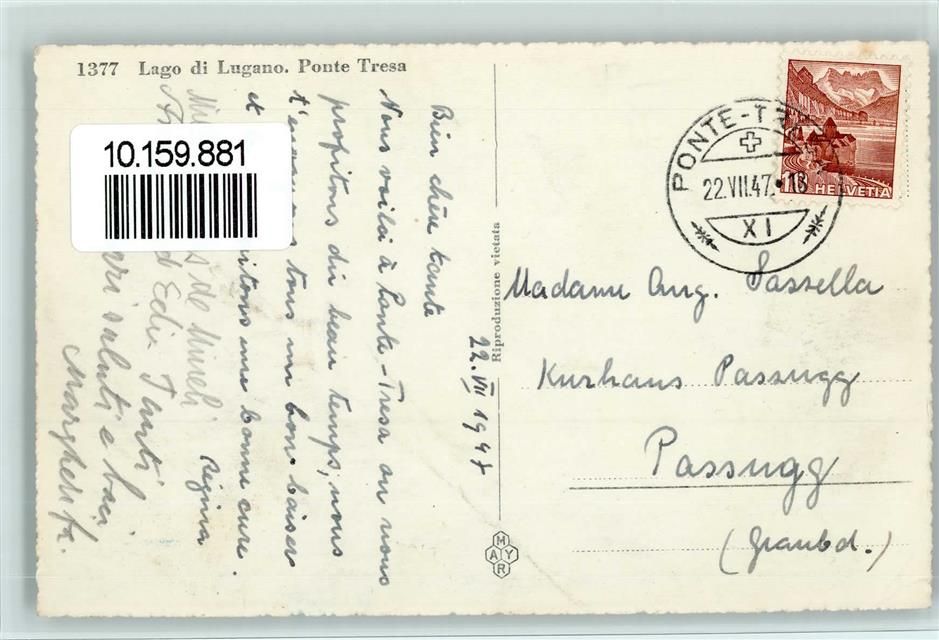 1377 Lago di Lugano. Ponte Tresa
10.159.881
PONTE-TR
22.VII.47.-18
XI
10 HELVETIA
Riproduzione vietata
22.VII 1947
Bien chère tante
Nous voilà à Ponte-Tresa ou nous
profitons du beau temps; nous
t'envoyons tous un bon baiser
et
itons une bonne cure.
Regina
de Mineli
Edu Tanti
saluti e baci
Margherita.
Madame Aug. Sassella
Kurhaus Passugg
Passugg
(Graubd.)
MAYR